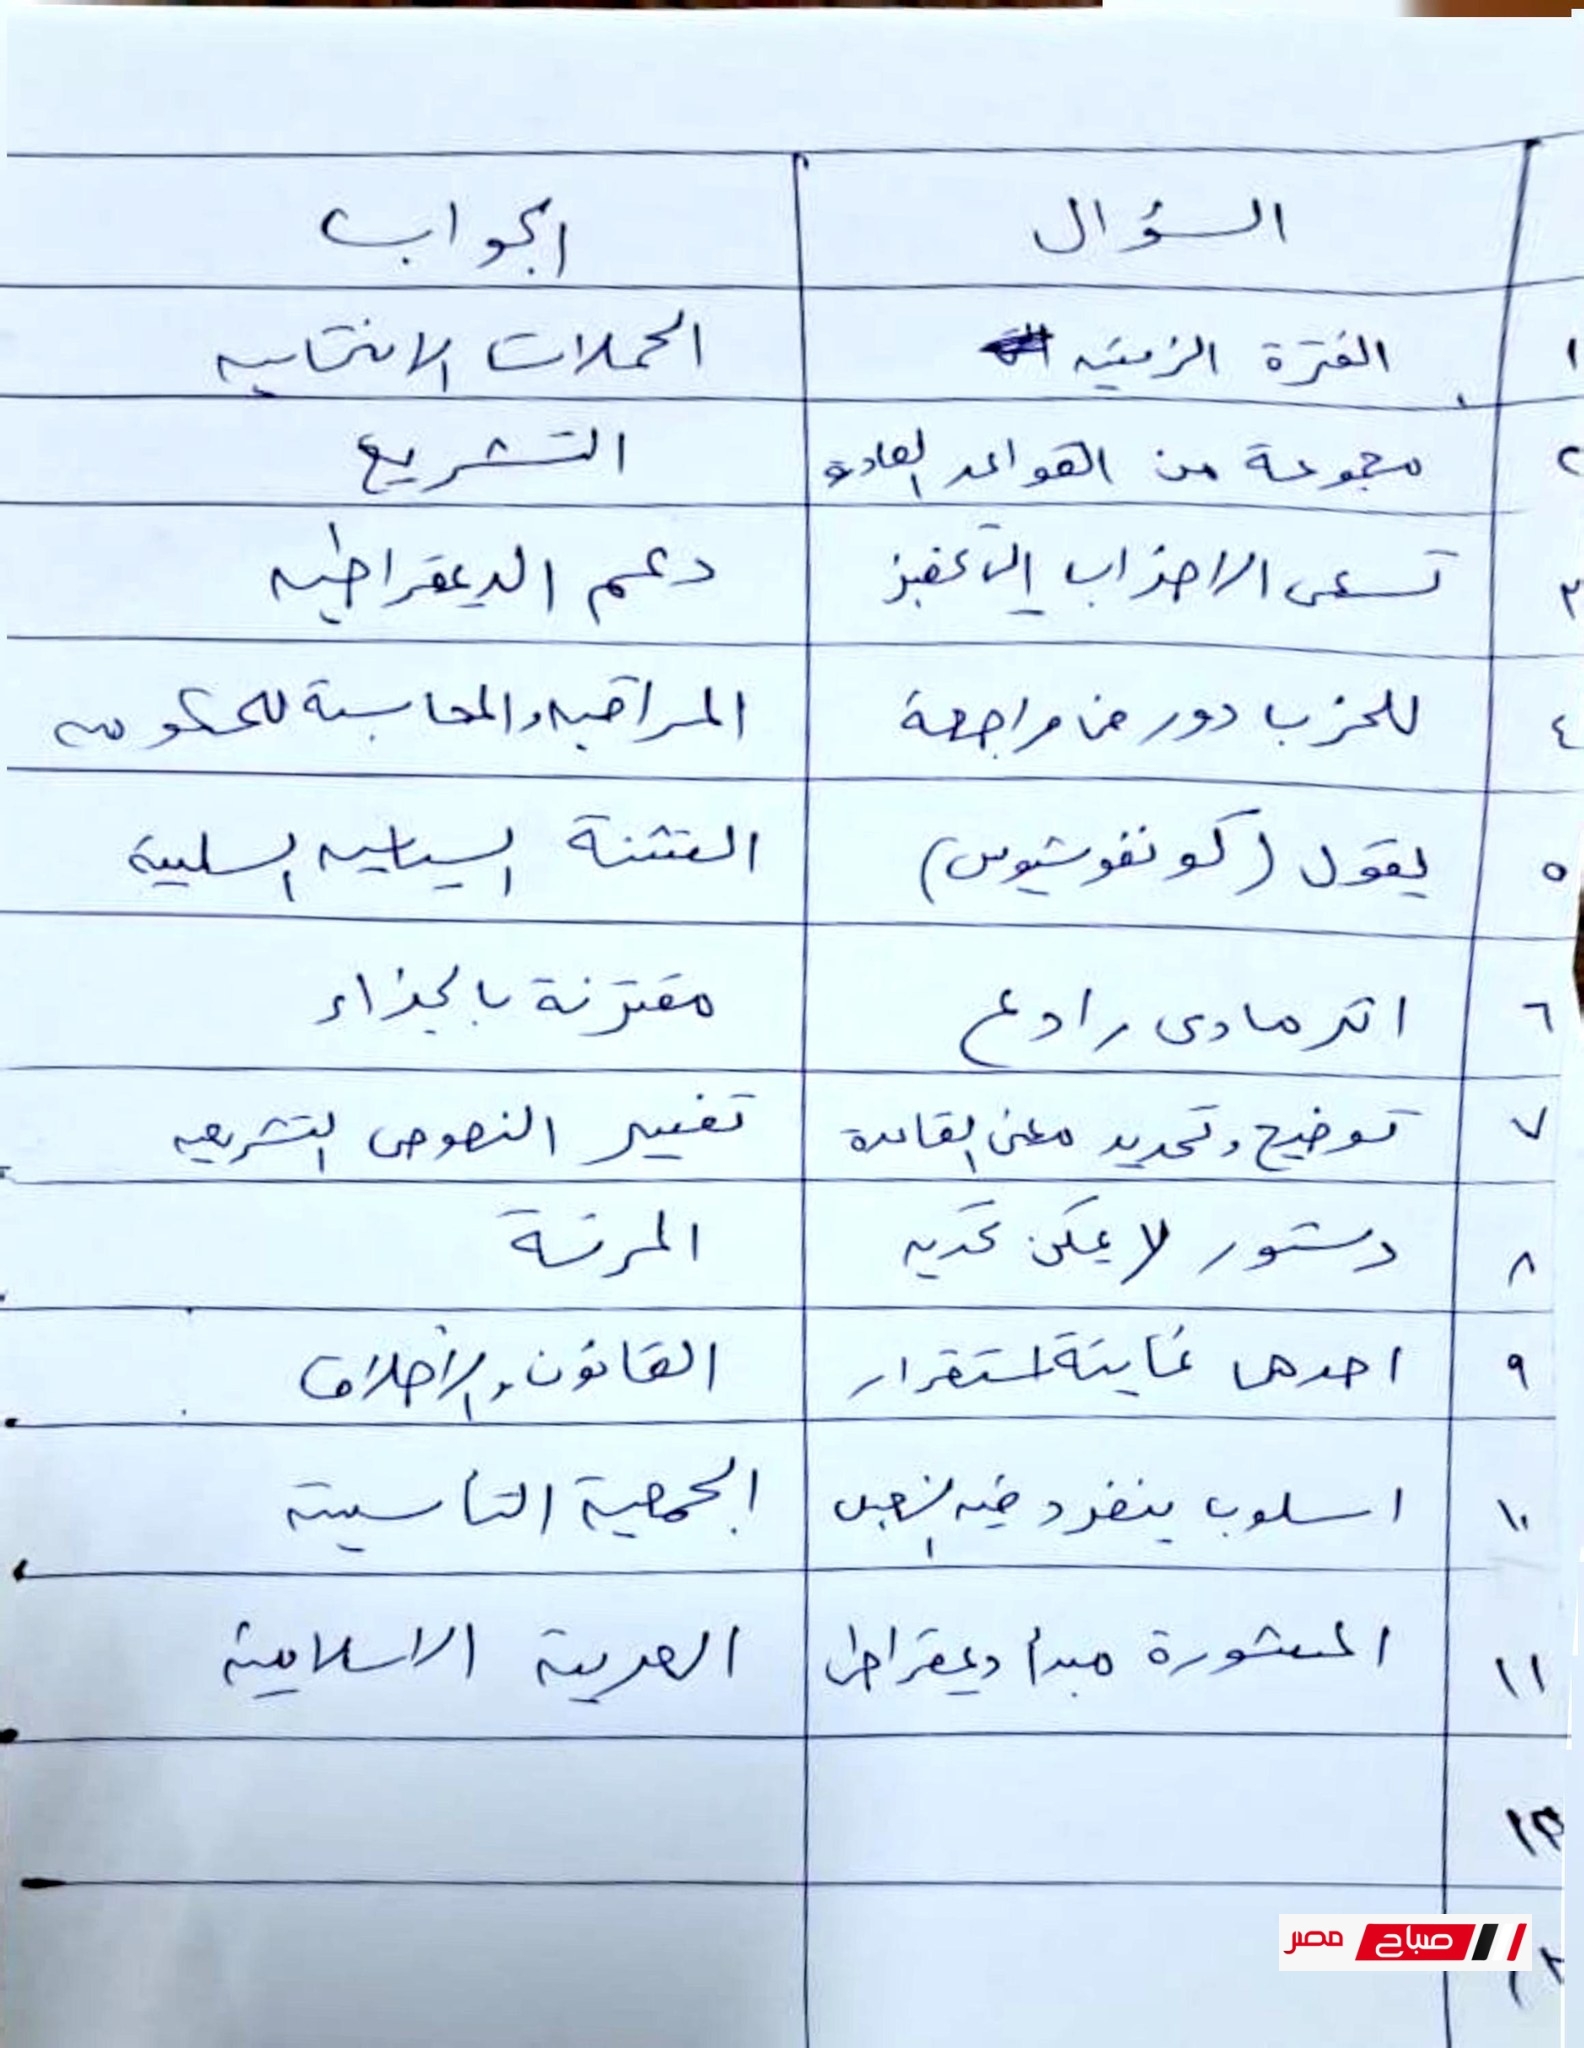 السؤال الجواب
١ الفترة الزمنيه الحملات الانتخابيه
٢ مجموعة من القواعد التشريع
٣ تسعى الاحزاب إلى تحفيز دعم الديمقراطيه
٤ للحزب دور في مراجعة المراقبه والمحاسبة للحكومه
٥ يقول (كونفوشيوس) التنشئة السياسيه السلبية
٦ اثر مادى رادع مقترنة بالجزاء
٧ توضيح وتحديد معنى القاعدة تفسير النصوص التشريعيه
٨ دستور لا يمكن المرنة
٩ احدهما غايتة استقرار القانون والأخلاق
١٠ اسلوب ينفرد فيه الشعب الجمعية التأسيسية
١١ المشورة مبدأ ديمقراطى العربية الاسلامية
صباح مصر